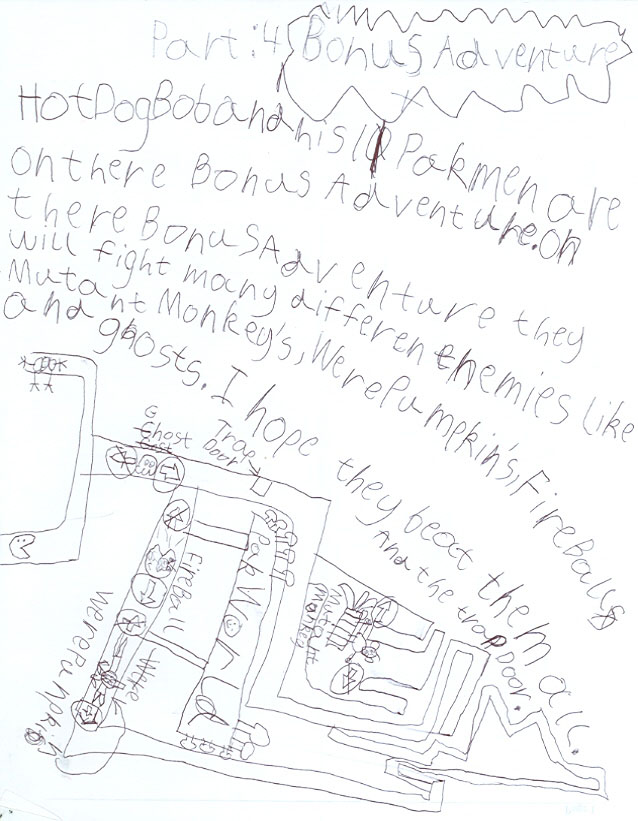 Part:4 Bonus Adventure
HotDogBob and his Pakmen are
on there Bonus Adventure. on
there Bonus Adventure they
will fight many different enemies like
Mutant Monkey's, WerePumpkin's, FireBalls
and ghosts. I hope they beat them all.
And the trap Door.
G
Ghost
Trap
Door
Fireball
Pak World
Mutant
Monkey
Were
WerePunpkin